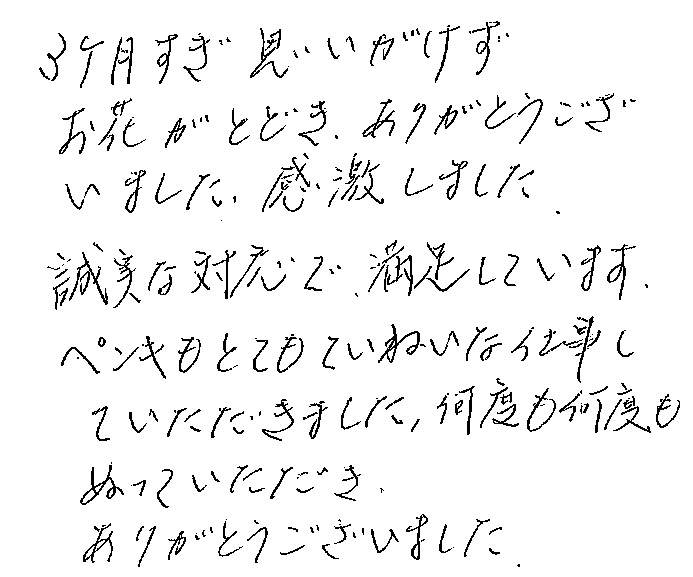 3ケ月すぎ思いがけず
お花がとどき、ありがとうござ
いました、感激しました.
誠実な対応で、満足しています.
ペンキもとてもていねいな仕事し
ていただきました,何度も何度も
ぬっていただき.
ありがとうございました.